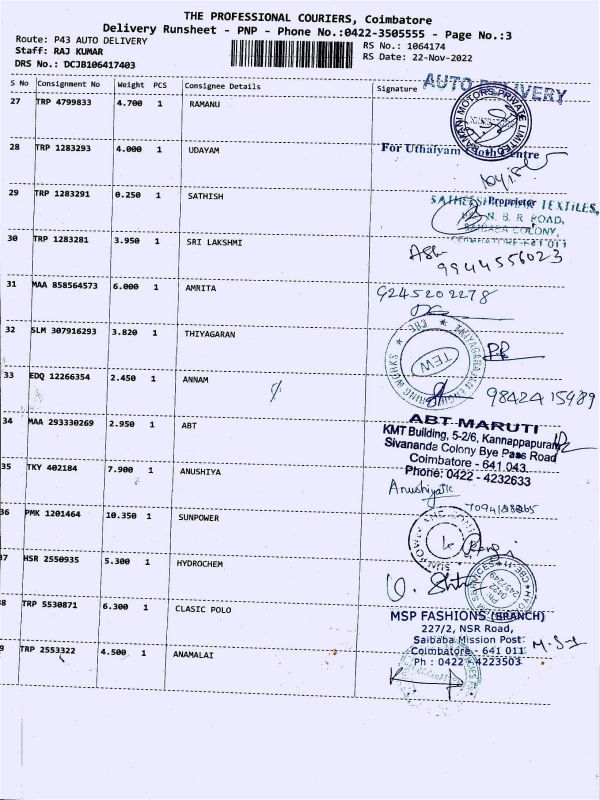 THE PROFESSIONAL COURIERS, Coimbatore
Delivery Runsheet - PNP - Phone No.:0422-3505555 - Page No.:3
Route: P43 AUTO DELIVERY
Staff: RAJ KUMAR
DRS No.: DCJB106417403
RS No.: 1064174
RS Date: 22-Nov-2022
S No Consignment No Weight PCS Consignee Details Signature
AUTO DELIVERY
27 TRP 4799833 4.700 1 RAMANU
MOTORS PRIVATE LIMITED
28 TRP 1283293 4.000 1 UDAYAM
For Uthaiyam Cloth Centre
Proprietor
29 TRP 1283291 0.250 1 SATHISH
TEXTILES,
N. S. R ROAD,
SAIBABA COLONY,
COIMBATORE-641 011
30 TRP 1283281 3.950 1 SRI LAKSHMI
9944556023
31 MAA 858564573 6.000 1 AMRITA
9245202278
32 SLM 307916293 3.820 1 THIYAGARAN
TEW
33 EDQ 12266354 2.450 1 ANNAM
9842415989
34 MAA 293330269 2.950 1 ABT
ABT MARUTI
KMT Building, 5-2/6, Kannappapuram
Sivananda Colony Bye Pass Road
Coimbatore - 641 043.
Phone: 0422 - 4232633
35 TKY 402184 7.900 1 ANUSHIYA
36 PMK 1201464 10.350 1 SUNPOWER
37 HSR 2550935 5.300 1 HYDROCHEM
8 TRP 5530871 6.300 1 CLASIC POLO
MSP FASHIONS (BRANCH)
227/2, NSR Road,
Saibaba Mission Post
Coimbatore - 641 011
Ph : 0422 - 4223503
9 TRP 2553322 4.500 1 ANAMALAI